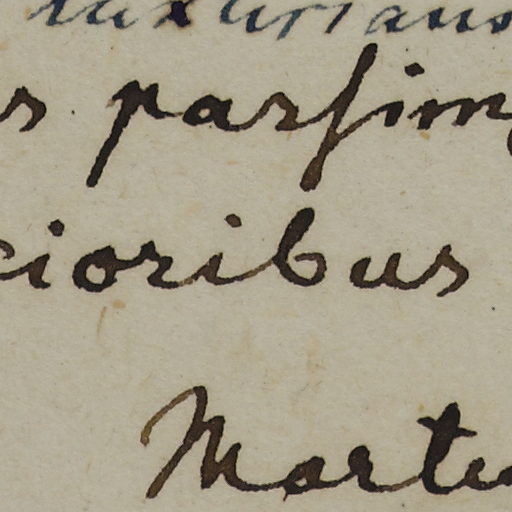 s parsim
cioribus
Marte